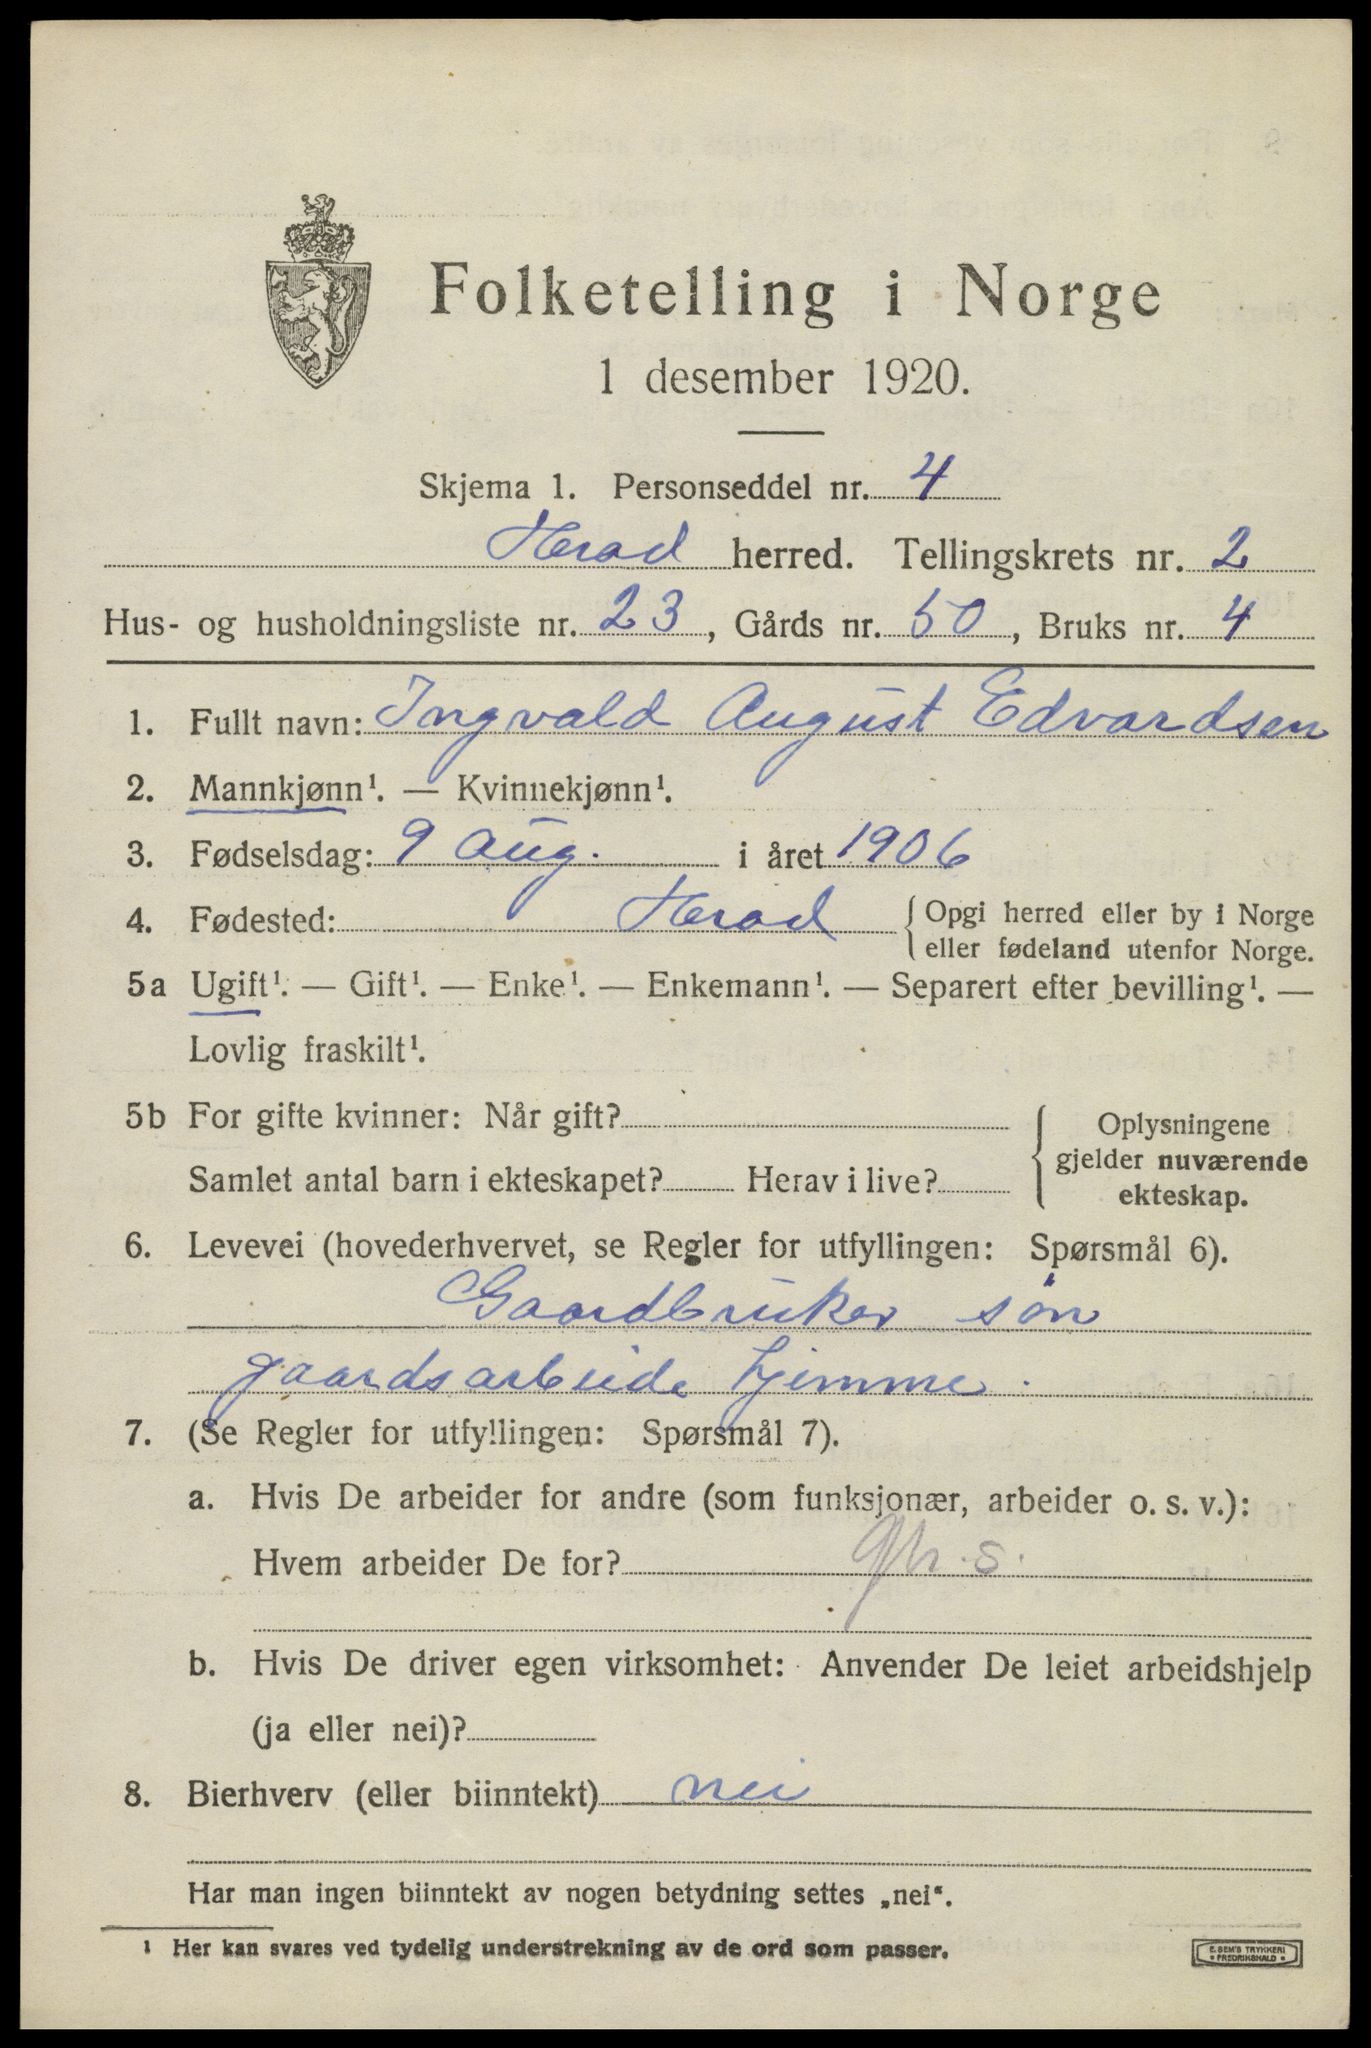 Folketelling i Norge
1 desember 1920.
Skjema 1. Personseddel nr. 4
Herad herred. Tellingskrets nr. 2
Hus- og husholdningsliste nr. 23, Gårds nr. 50, Bruks nr. 4
1. Fullt navn: Ingvald August Edvardsen
2. Mannkjønn¹. — Kvinnekjønn¹.
3. Fødselsdag: 9 aug. i året 1906
4. Fødested: Herad { Opgi herred eller by i Norge
eller fødeland utenfor Norge.
5a Ugift¹. — Gift¹. — Enke¹. — Enkemann¹. — Separert efter bevilling¹. —
Lovlig fraskilt¹.
5b For gifte kvinner: Når gift?
Samlet antal barn i ekteskapet? Herav i live?
{ Oplysningene
gjelder nuværende
ekteskap.
6. Levevei (hovederhvervet, se Regler for utfyllingen: Spørsmål 6).
Gaardbruker søn
gaardsarbeide hjemme.
7. (Se Regler for utfyllingen: Spørsmål 7).
a. Hvis De arbeider for andre (som funksjonær, arbeider o. s. v.):
Hvem arbeider De for? gbr. s.
b. Hvis De driver egen virksomhet: Anvender De leiet arbeidshjelp
(ja eller nei)?
8. Bierhverv (eller biinntekt) nei
Har man ingen biinntekt av nogen betydning settes „nei“.
¹ Her kan svares ved tydelig understrekning av de ord som passer.
E. SEM'S TRYKKERI
• FREDRIKSHALD •